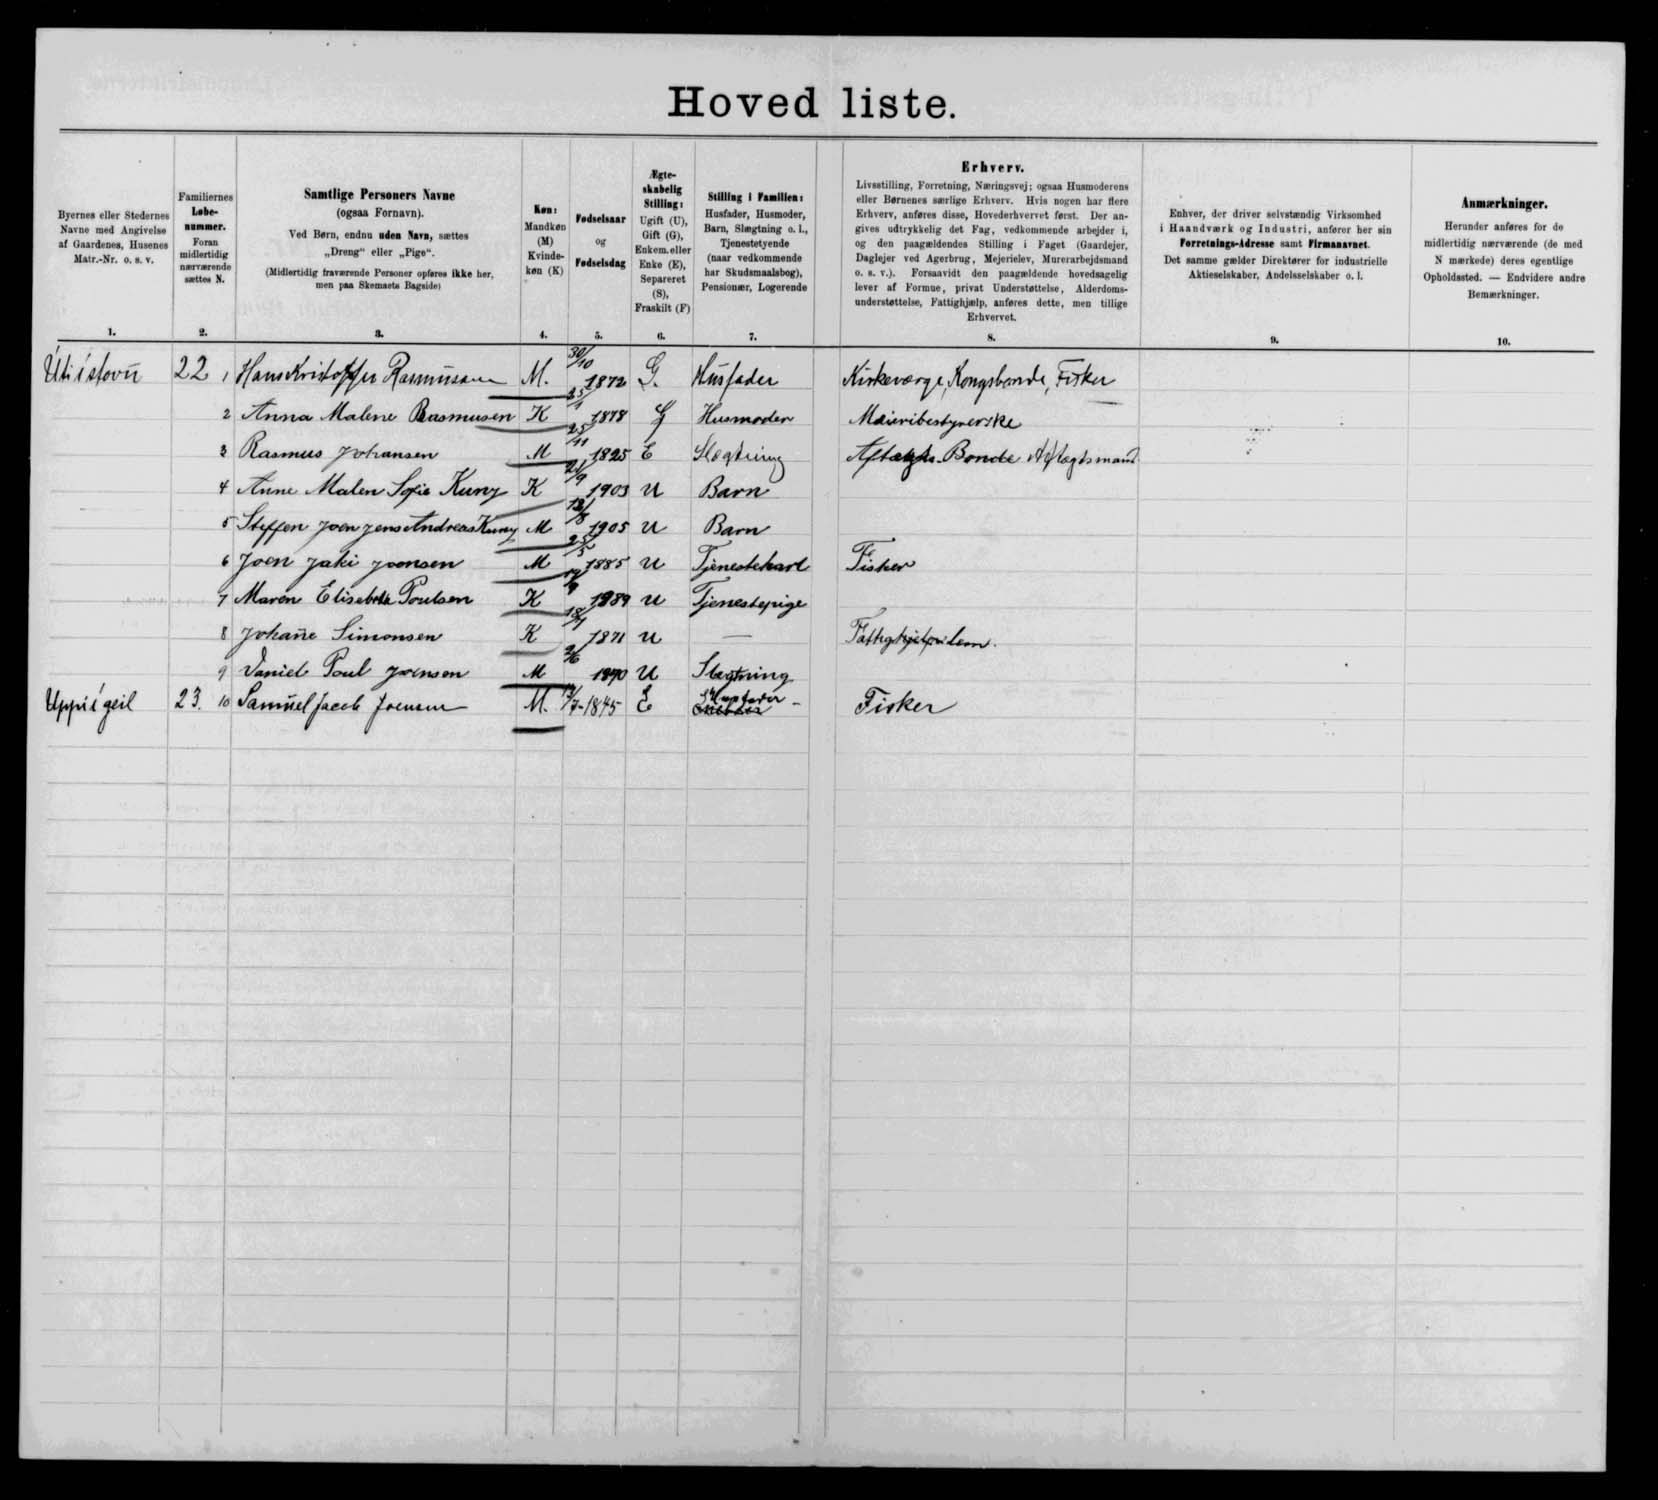 Hoved liste.
Byernes eller Stedernes Navne med Angivelse af Gaardenes, Husenes Matr.-Nr. o. s. v.
Familiernes Løbe-nummer. Foran midlertidig nærværende sættes N.
Samtlige Personers Navne
(ogsaa Fornavn).
Ved Børn, endnu uden Navn, sættes
„Dreng“ eller „Pige“.
(Midlertidig fraværende Personer opføres ikke her,
men paa Skemaets Bagside)
Køn:
Mandkøn
(M)
Kvinde-
køn (K)
Fødselsaar
og
Fødselsdag
Ægte-
skabelig
Stilling:
Ugift (U),
Gift (G),
Enkem. eller
Enke (E),
Separeret
(S),
Fraskilt (F)
Stilling i Familien:
Husfader, Husmoder,
Barn, Slægtning o. l.,
Tjenestetyende
(naar vedkommende
har Skudsmaalsbog),
Pensionær, Logerende
Erhverv.
Livsstilling, Forretning, Næringsvej; ogsaa Husmoderens
eller Børnenes særlige Erhverv. Hvis nogen har flere
Erhverv, anføres disse, Hovederhvervet først. Der an-
gives udtrykkelig det Fag, vedkommende arbejder i,
og den paagældendes Stilling i Faget (Gaardejer,
Daglejer ved Agerbrug, Mejerielev, Murerarbejdsmand
o. s. v.). Forsaavidt den paagældende hovedsagelig
lever af Formue, privat Understøttelse, Alderdoms-
understøttelse, Fattighjælp, anføres dette, men tillige
Erhvervet.
Enhver, der driver selvstændig Virksomhed
i Haandværk og Industri, anfører her sin
Forretnings-Adresse samt Firmanavnet.
Det samme gælder Direktører for industrielle
Aktieselskaber, Andelsselskaber o. l.
Anmærkninger.
Herunder anføres for de
midlertidig nærværende (de med
N mærkede) deres egentlige
Opholdssted. — Endvidere andre
Bemærkninger.
1. 2. 3. 4. 5. 6. 7. 8. 9. 10.
Úti í stovu 22 1 Hans Kristoffer Rasmussen M. 30/10 1872 G. Husfader Kirkeværge, Kongsbonde, Fisker
2 Anna Malene Rasmusen K 25/1 1878 G Husmoder Meieribestyrerske
3 Rasmus Johansen M 25/11 1825 E Slægtning Aftægts Bonde Aftægtsmand
4 Anne Malen Sofie Kuny K 21/9 1903 U Barn
5 Steffen Joen Jens Andreas Kuny M 12/8 1905 U Barn
6 Joen Jaki Joensen M 25/5 1885 U Tjenestekarl Fisker
7 Maren Elisebeth Poulsen K 1889 U Tjenestepige
8 Johanne Simonsen K 18/1 1871 U — Fattighjelpen lem.
9 Daniel Poul Joensen M 2/6 1890 U Slægtning
Uppi í geil 23. 10 Samuel Jacob Joensen M. 13/7-1845 E Husfader - Fisker